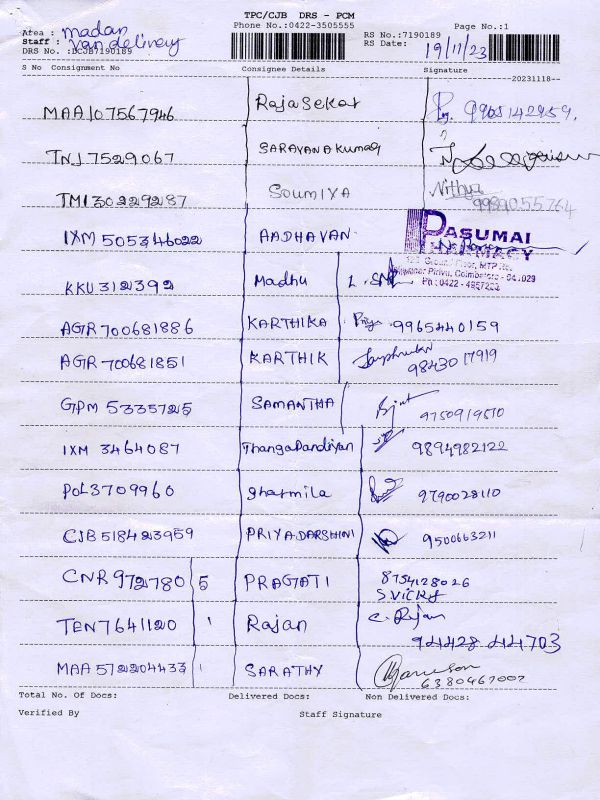 TPC/CJB DRS - PCM
Phone No.:0422-3505555
Page No.:1
Area : madan
Staff : van delivery
DRS No. :DCJB7190189
RS No.:7190189
RS Date: 19/11/23
S No Consignment No Consignee Details Signature
--20231118--
MAA107567946 RajaSekar 9965142959.
TNJ7529067 SARAVANAKumar
TMI30229287 Soumiya Nithya 9989055764
IXM 505346022 AADHAVAN
PASUMAI PHARMACY
Ph : 0422 - 4957223
KKU312392 Madhu
AGR 700681886 KARTHIKA Priya 9965440159
AGR 700681851 KARTHIK 9843017919
GPM 5335725 SAMANTHA 9750919510
IXM 3464087 ThangaPandiyan 9894982122
POL3709960 sharmila 9790028110
CJB518423959 PRIYADARSHINI 9500663211
CNR972780 5 PRAGATI 8754128026
S VICKY
TEN7641120 1 Rajan C. Rajan
94428 44703
MAA 572204433 1 SARATHY
6380467007
Total No. Of Docs: Delivered Docs: Non Delivered Docs:
Verified By Staff Signature